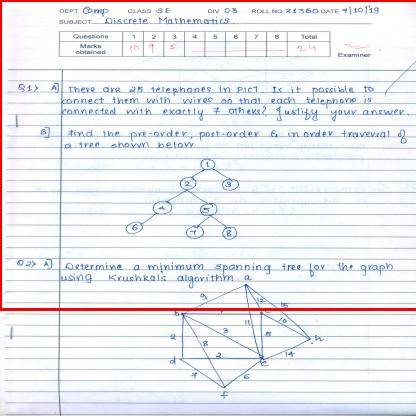 DEPT. Comp CLASS SE DIV 03 ROLL NO. 21360 DATE 4/10/19
SUBJECT Discrete Mathematics.
Questions 1 2 3 4 5 6 7 8 Total
Marks obtained 10 9 5 24
Examiner
Q1> A] There are 25 telephones in PICT. Is it possible to
connect them with wires so that each telephone is
connected with exactly 7 others? Justify your answer.
B] Find the pre-order, post-order & in order traversal of
a tree shown below
1
2 3
4 5
6 7 8
Q2> A] Determine a minimum spanning tree for the graph
using Krushkal's algorithm.
a
9 12 15
b c
11 10
3 h
2 8 5
14
d 2 e
7 6
f